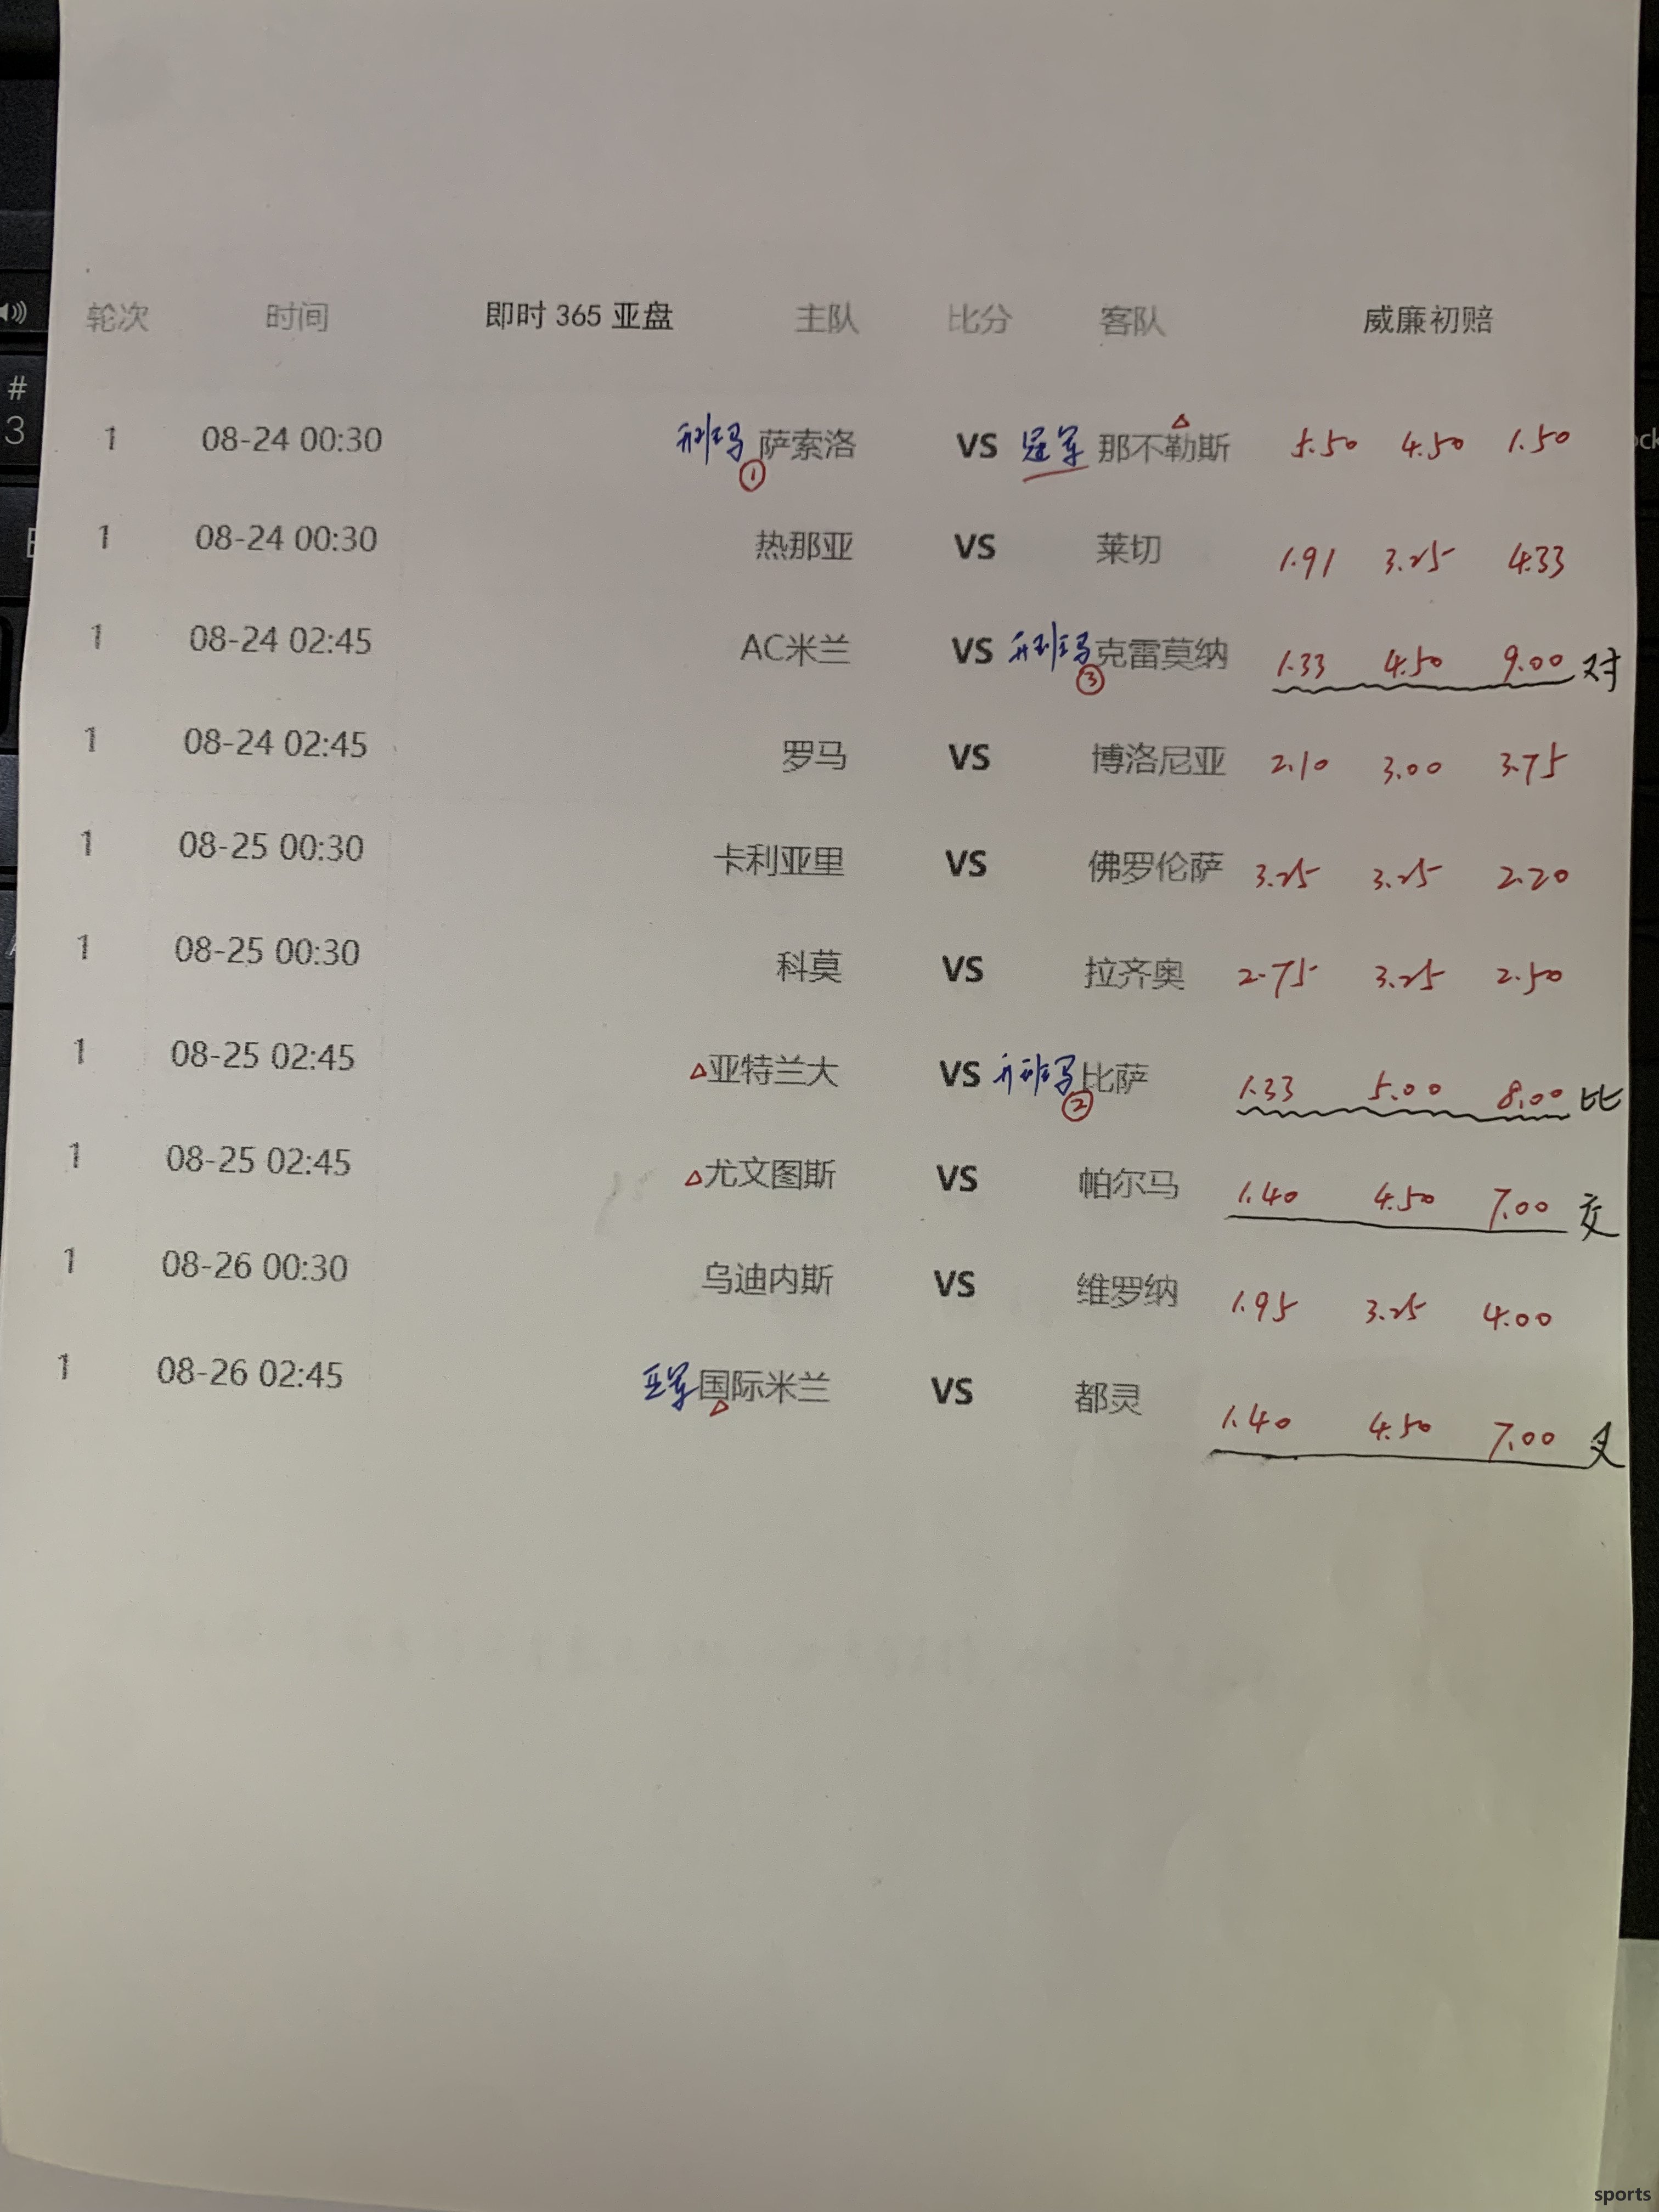 轮次 时间 即时 365 亚盘 主队 比分 客队 威廉初赔
1 08-24 00:30 升班马 ① 萨索洛 VS 冠军 那不勒斯 5.50 4.50 1.50
1 08-24 00:30 热那亚 VS 莱切 1.91 3.25 4.33
1 08-24 02:45 AC米兰 VS 升班马 ③ 克雷莫纳 1.33 4.50 9.00 对
1 08-24 02:45 罗马 VS 博洛尼亚 2.10 3.00 3.75
1 08-25 00:30 卡利亚里 VS 佛罗伦萨 3.25 3.25 2.20
1 08-25 00:30 科莫 VS 拉齐奥 2.75 3.25 2.50
1 08-25 02:45 亚特兰大 VS 升班马 ② 比萨 1.33 5.00 8.00 比
1 08-25 02:45 尤文图斯 VS 帕尔马 1.40 4.50 7.00 交
1 08-26 00:30 乌迪内斯 VS 维罗纳 1.95 3.25 4.00
1 08-26 02:45 亚军 国际米兰 VS 都灵 1.40 4.50 7.00
sports
# 3